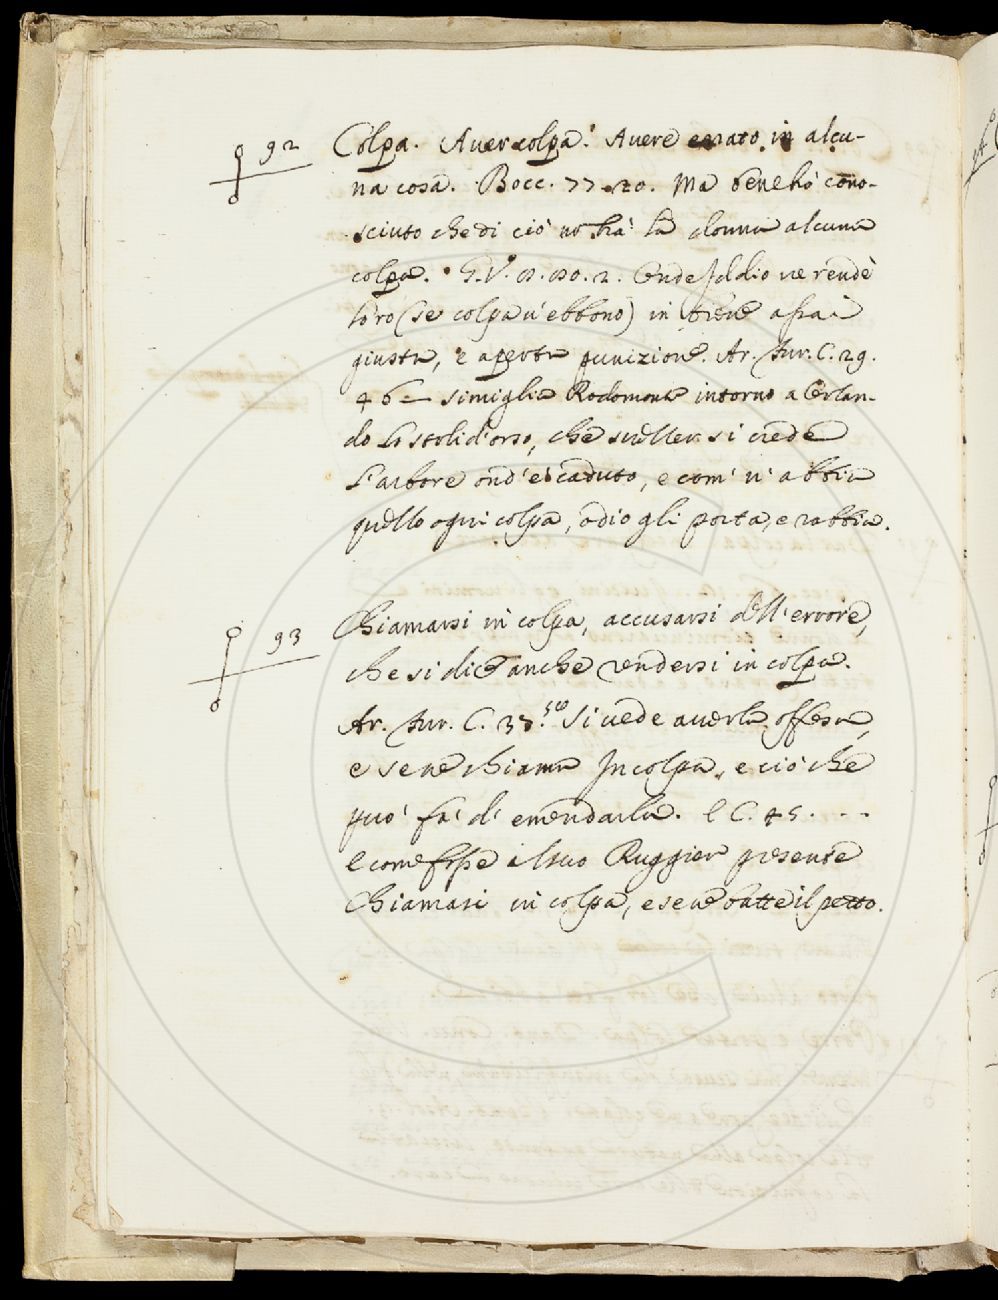 92 Colpa. Aver colpa. Avere errato in alcu-
na cosa. Bocc. 77. 20. Ma bene hò cono-
sciuto che di ciò nō hà la donna alcuna
colpa. G. V. 8. 80. 2. Onde Iddio ne rendè
loro (se colpa v'ebbono) in brieve assai
giusta, e aperta punizione. Ar. Fur. C. 29.
46 simiglia Rodomonte intorno a Orlan-
do Lo stolid'orso, che sveller si crede
L'arbore ond'è caduto, e com' n'abbia
quello ogni colpa, odio gli porta, e rabbia.
93 Chiamarsi in colpa, accusarsi dell'errore,
che si dice anche rendersi in colpa.
Ar. Fur. C. Si vede averla offesa,
e se ne chiama In colpa, e ciò che
può fà d'emendarla. E C. 45. - - -
E come fosse il suo Ruggier presente
Chiamasi in colpa, e se ne batte il petto.